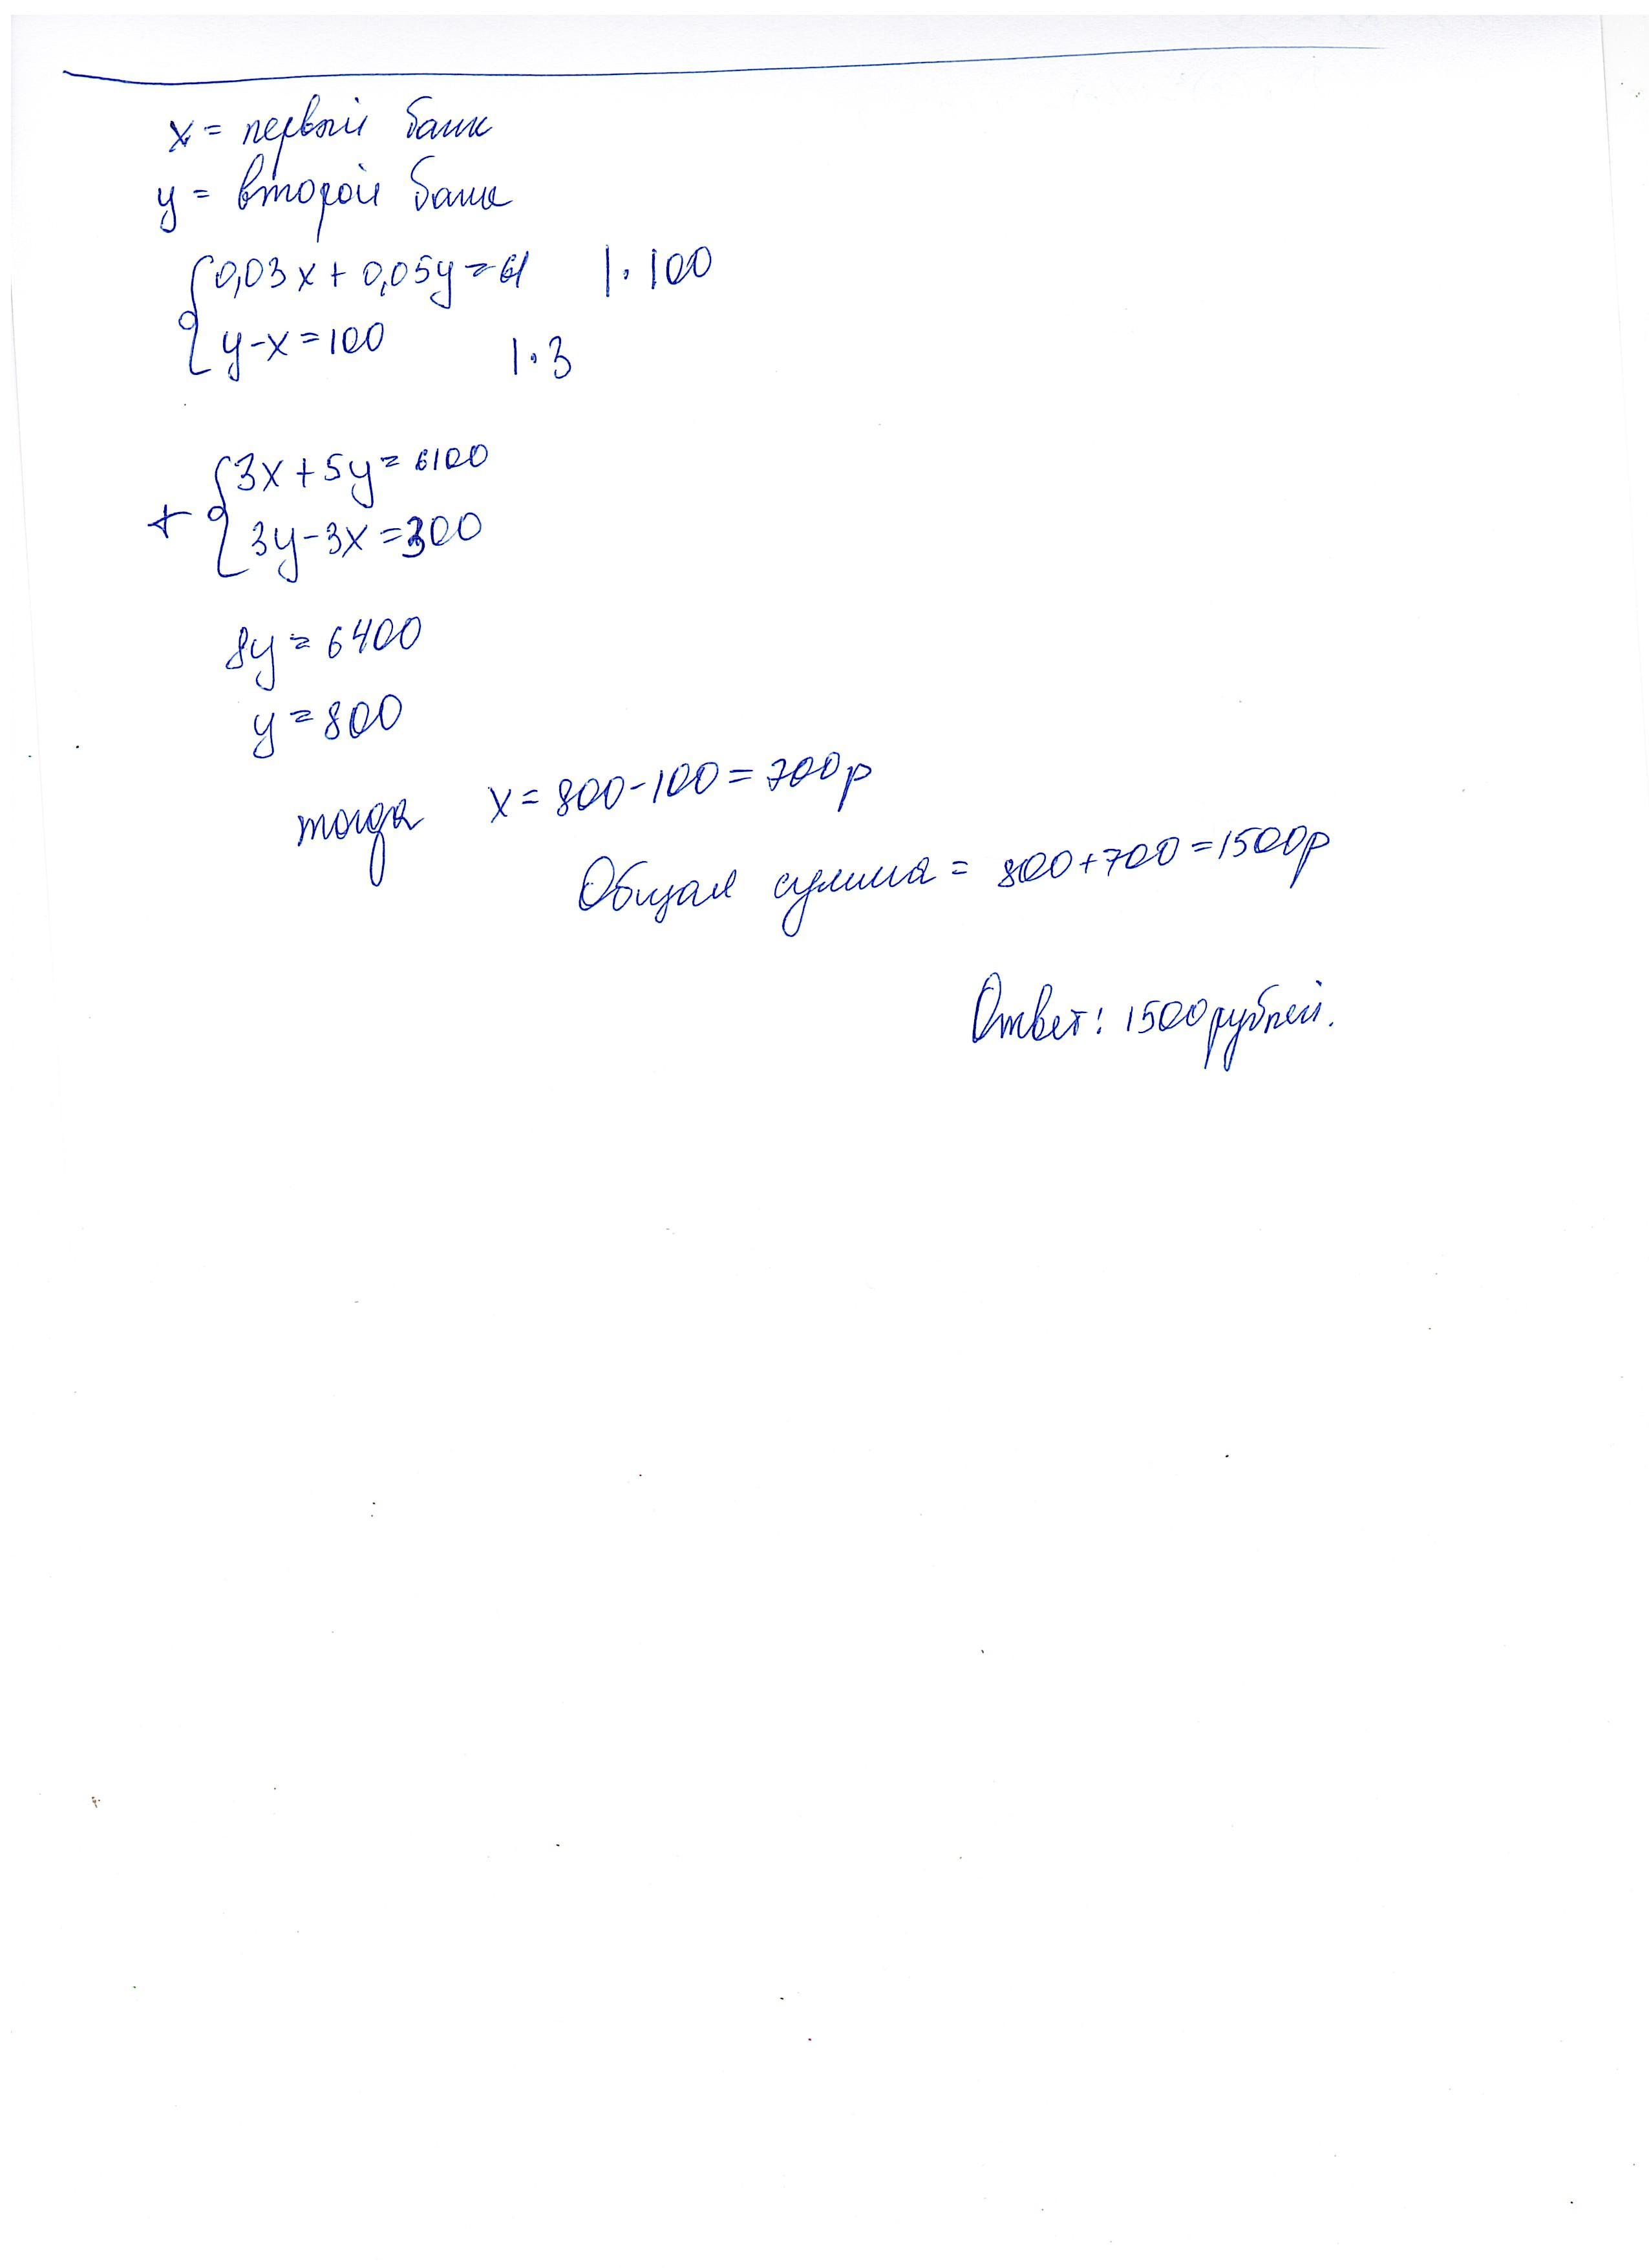 x = первый банк
y = второй банк
0,03x + 0,05y = 61 |· 100
y - x = 100 |· 3
3x + 5y = 6100
+
3y - 3x = 300
8y = 6400
y = 800
тогда x = 800 - 100 = 700р
Общая сумма = 800 + 700 = 1500р
Ответ: 1500 рублей.